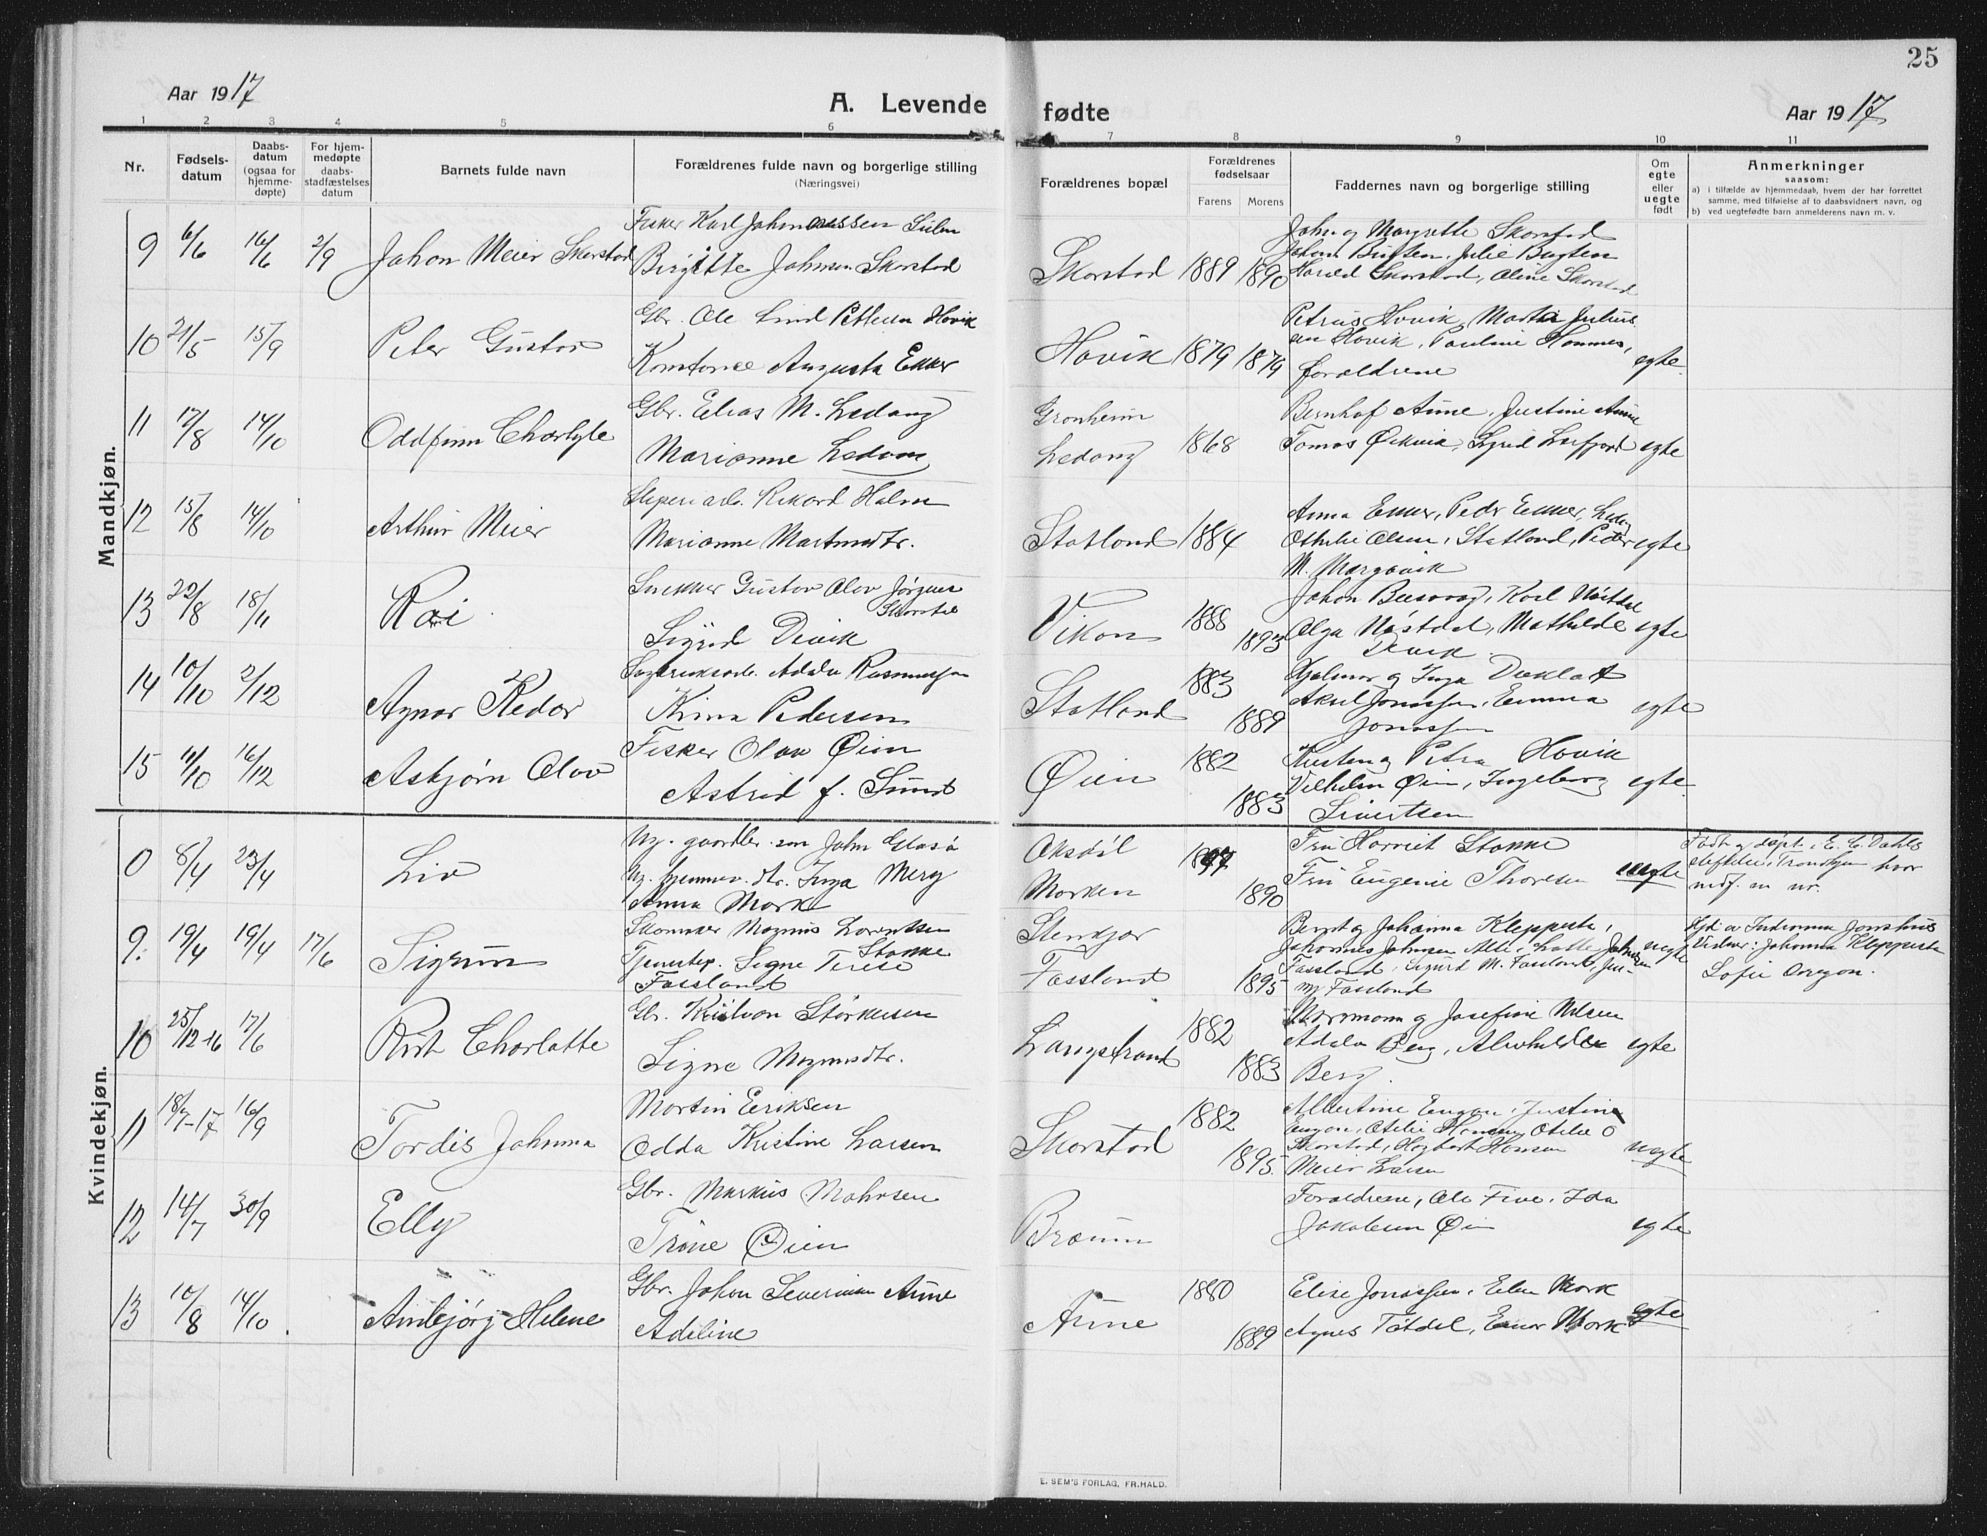 25
Aar 1917
A. Levende fødte
Aar 1917
1 2 3 4 5 6 7 8 9 10 11
Nr.
Fødsels-
datum
Daabs-
datum
(ogsaa for
hjemme-
døpte)
For hjem-
medøpte
daabs-
stadfæstelses
datum
Barnets fulde navn
Forældrenes fulde navn og borgerlige stilling
(Næringsvei)
Forældrenes bopæl
Forældrenes
fødselsaar
Farens Morens
Faddernes navn og borgerlige stilling
Om
egte
eller
uegte
født
Anmerkninger
saasom:
a) i tilfælde av hjemmedaab, hvem der har forrettet
samme, med tilføielse af to daabsvidners navn, og
b) ved uegtefødte barn anmelderens navn m. v.
Mandkjøn.
9 6/6 16/6 2/9 Johan Meier Skorstad
Fisker Karl Johan
Birgitte Johnsen Skorstad
Skorstad 1889 1890
John og Margrethe Skorstad
Harald Skorstad, Oline Skorstad
10 21/5 15/9 Peter Gustav
Gbr. Ole Lind Pettersen Hovik
Konstanse Augusta Ekker
Hovik 1879 1879
Petrus Hovik, Marta Julius
sen Hovik, Pauline Hommes,
foraldrene
egte
11 17/8 14/10 Oddfinn Charlyle
Gbr. Edias M. Ledang
Marianne Ledang
Gronheim
Ledang
1868
Bernhof Aune, Justine Aune
Tomas Ørkvik, Sigrid
egte
12 15/8 14/10 Arthur Meier
Rikard Holm
Marianne Martinsdtr.
Statland 1884
Anna Ekker, Peder Ekker,
Othelie Olsen, Statland, Peter
M. Margavik
egte
13 22/8 18/11 Kai
Snekker Gustav Olav Jørgens
Skorstad
Sigrid Devik
Vikan 1888 1893
Johan Beisvaag, Karl Nøstdal
Olga Nøstdal, Mathilde
Devik
egte
14 10/10 2/12 Agnar Kedar
Adolv Rasmussen
Krina Pedersen
Statland 1883 1889
Hjalmar og Inga
Aksel Jonassen, Emma
Jonassen
egte
15 11/10 16/12 Asbjørn Olav
Fisker Olav Øien
Astrid f. Sund
Øien 1882 1883
Kristen og Petra Hovik
Vilhelm Øien, Ingeborg
Sivertsen
egte
Kvindekjøn.
0 8/4 23/4 Liv
Ug. gaardbr. søn John Glasø
Ug. hjemmev. dtr. Inga Merg
Anna Mork
Morken
1897 1890
Fru Harriet Stokke
Fru Eugenie Thoresen
uegte
Født og døpt i E. C. Dahls
stiftelse, Trondhjem hvor
indf. m nr.
9. 19/4 19/4 17/6 Sigrun
Magnus Lorentsen
Stokke
Tjenestep. Signe Terese
Fossland
Stenkjær
Fossland
1895
Bernt og Johanna Kleppesta,
Johannes Johnsen
Fossland, Sigurd M. Fossland, Jen-
ny Fossland
uegte
Vidner: Johanna Kleppesta
Lofie
10 25/12-16 17/6 Rut Charlotte
Gbr. Kristian Størkersen
Signe Magnusdtr.
Langstrand 1882 1883
og Josefine Nilsen
Adolv Berg, Alvhilde
Berg.
egte
11 18/7-17 16/9 Tordis Johanna
Martin Eriksen
Odda Kristine Larsen
Skorstad 1882 1895
Albertine Engan, Justine
Engan, Otelie Hansen, Otelie O
Skorstad, Hansen
Meier Larsen
uegte
12 14/7 30/9 Elly
Gbr. Markus Mahrsen
Trine Øien
Bræum
Foraldrene, Ole Five, Ida
Jakobsen Øien
egte
13 10/8 14/10 Anbjørg Helene
Gbr. Johan Severinsen Aune
Adeline
Aune 1880 1889
Elise Jonassen, Elen Mork
Agnes Tøtdal, Einar Mork
egte
E. SEM'S FORLAG, FR.HALD.